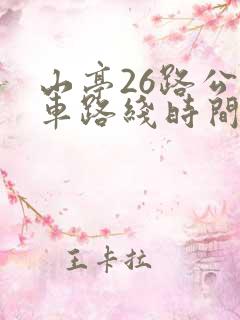 山亭26路公
車路綫時間
王卡拉